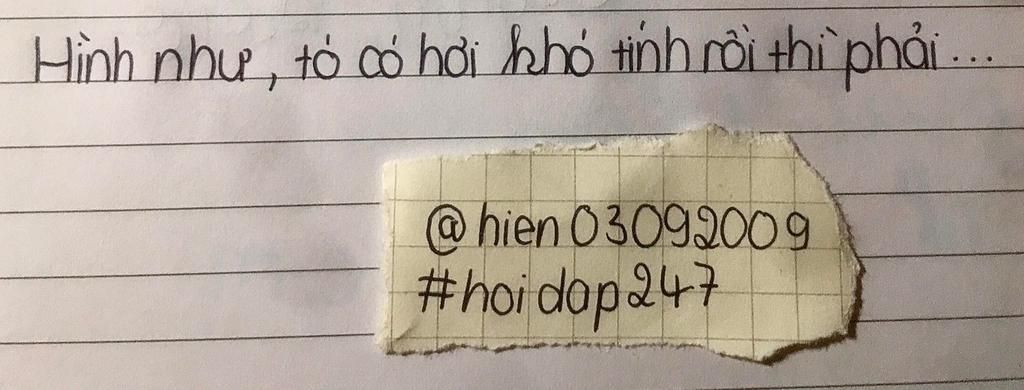 Hình như, tớ có hơi khó tính rồi thì phải...
@hien03092009
#hoidap247